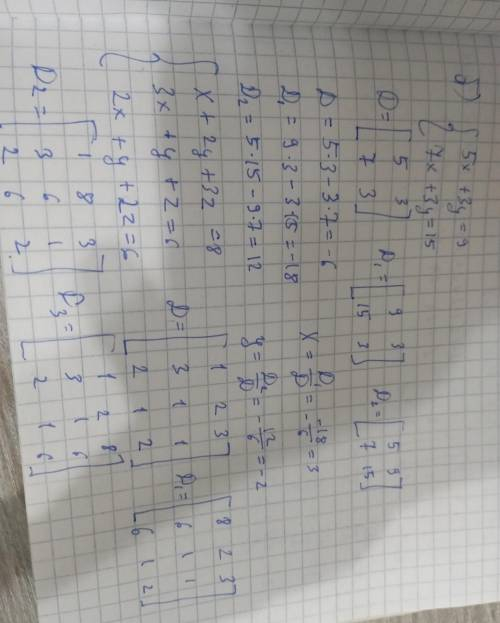 б) { 5x + 3y = 9
7x + 3y = 15
D = [ 5 3
7 3 ]
D₁ = [ 9 3
15 3 ]
D₂ = [ 5 9
7 15 ]
D = 5·3 − 3·7 = −6
D₁ = 9·3 − 3·15 = −18
D₂ = 5·15 − 9·7 = 12
x = D₁/D = −18/−6 = 3
y = D₂/D = −12/6 = −2
{ x + 2y + 3z = 8
3x + y + z = 6
2x + y + 2z = 6
D = [ 1 2 3
3 1 1
2 1 2 ]
D₁ = [ 8 2 3
6 1 1
6 1 2 ]
D₂ = [ 1 8 3
3 6 1
2 6 2 ]
D₃ = [ 1 2 8
3 1 6
2 1 6 ]